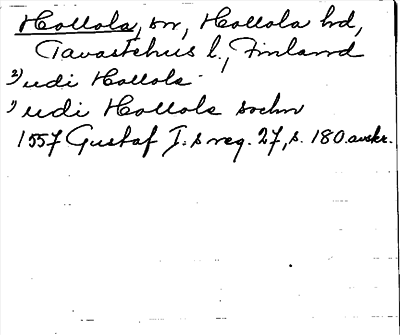 Hollola, sn, Hollola hd,
Tavastehus l., Finland
2) udi Hollols
1) udi Hollols sochn
1557 Gustaf I:s reg. 27, s. 180. avskr.